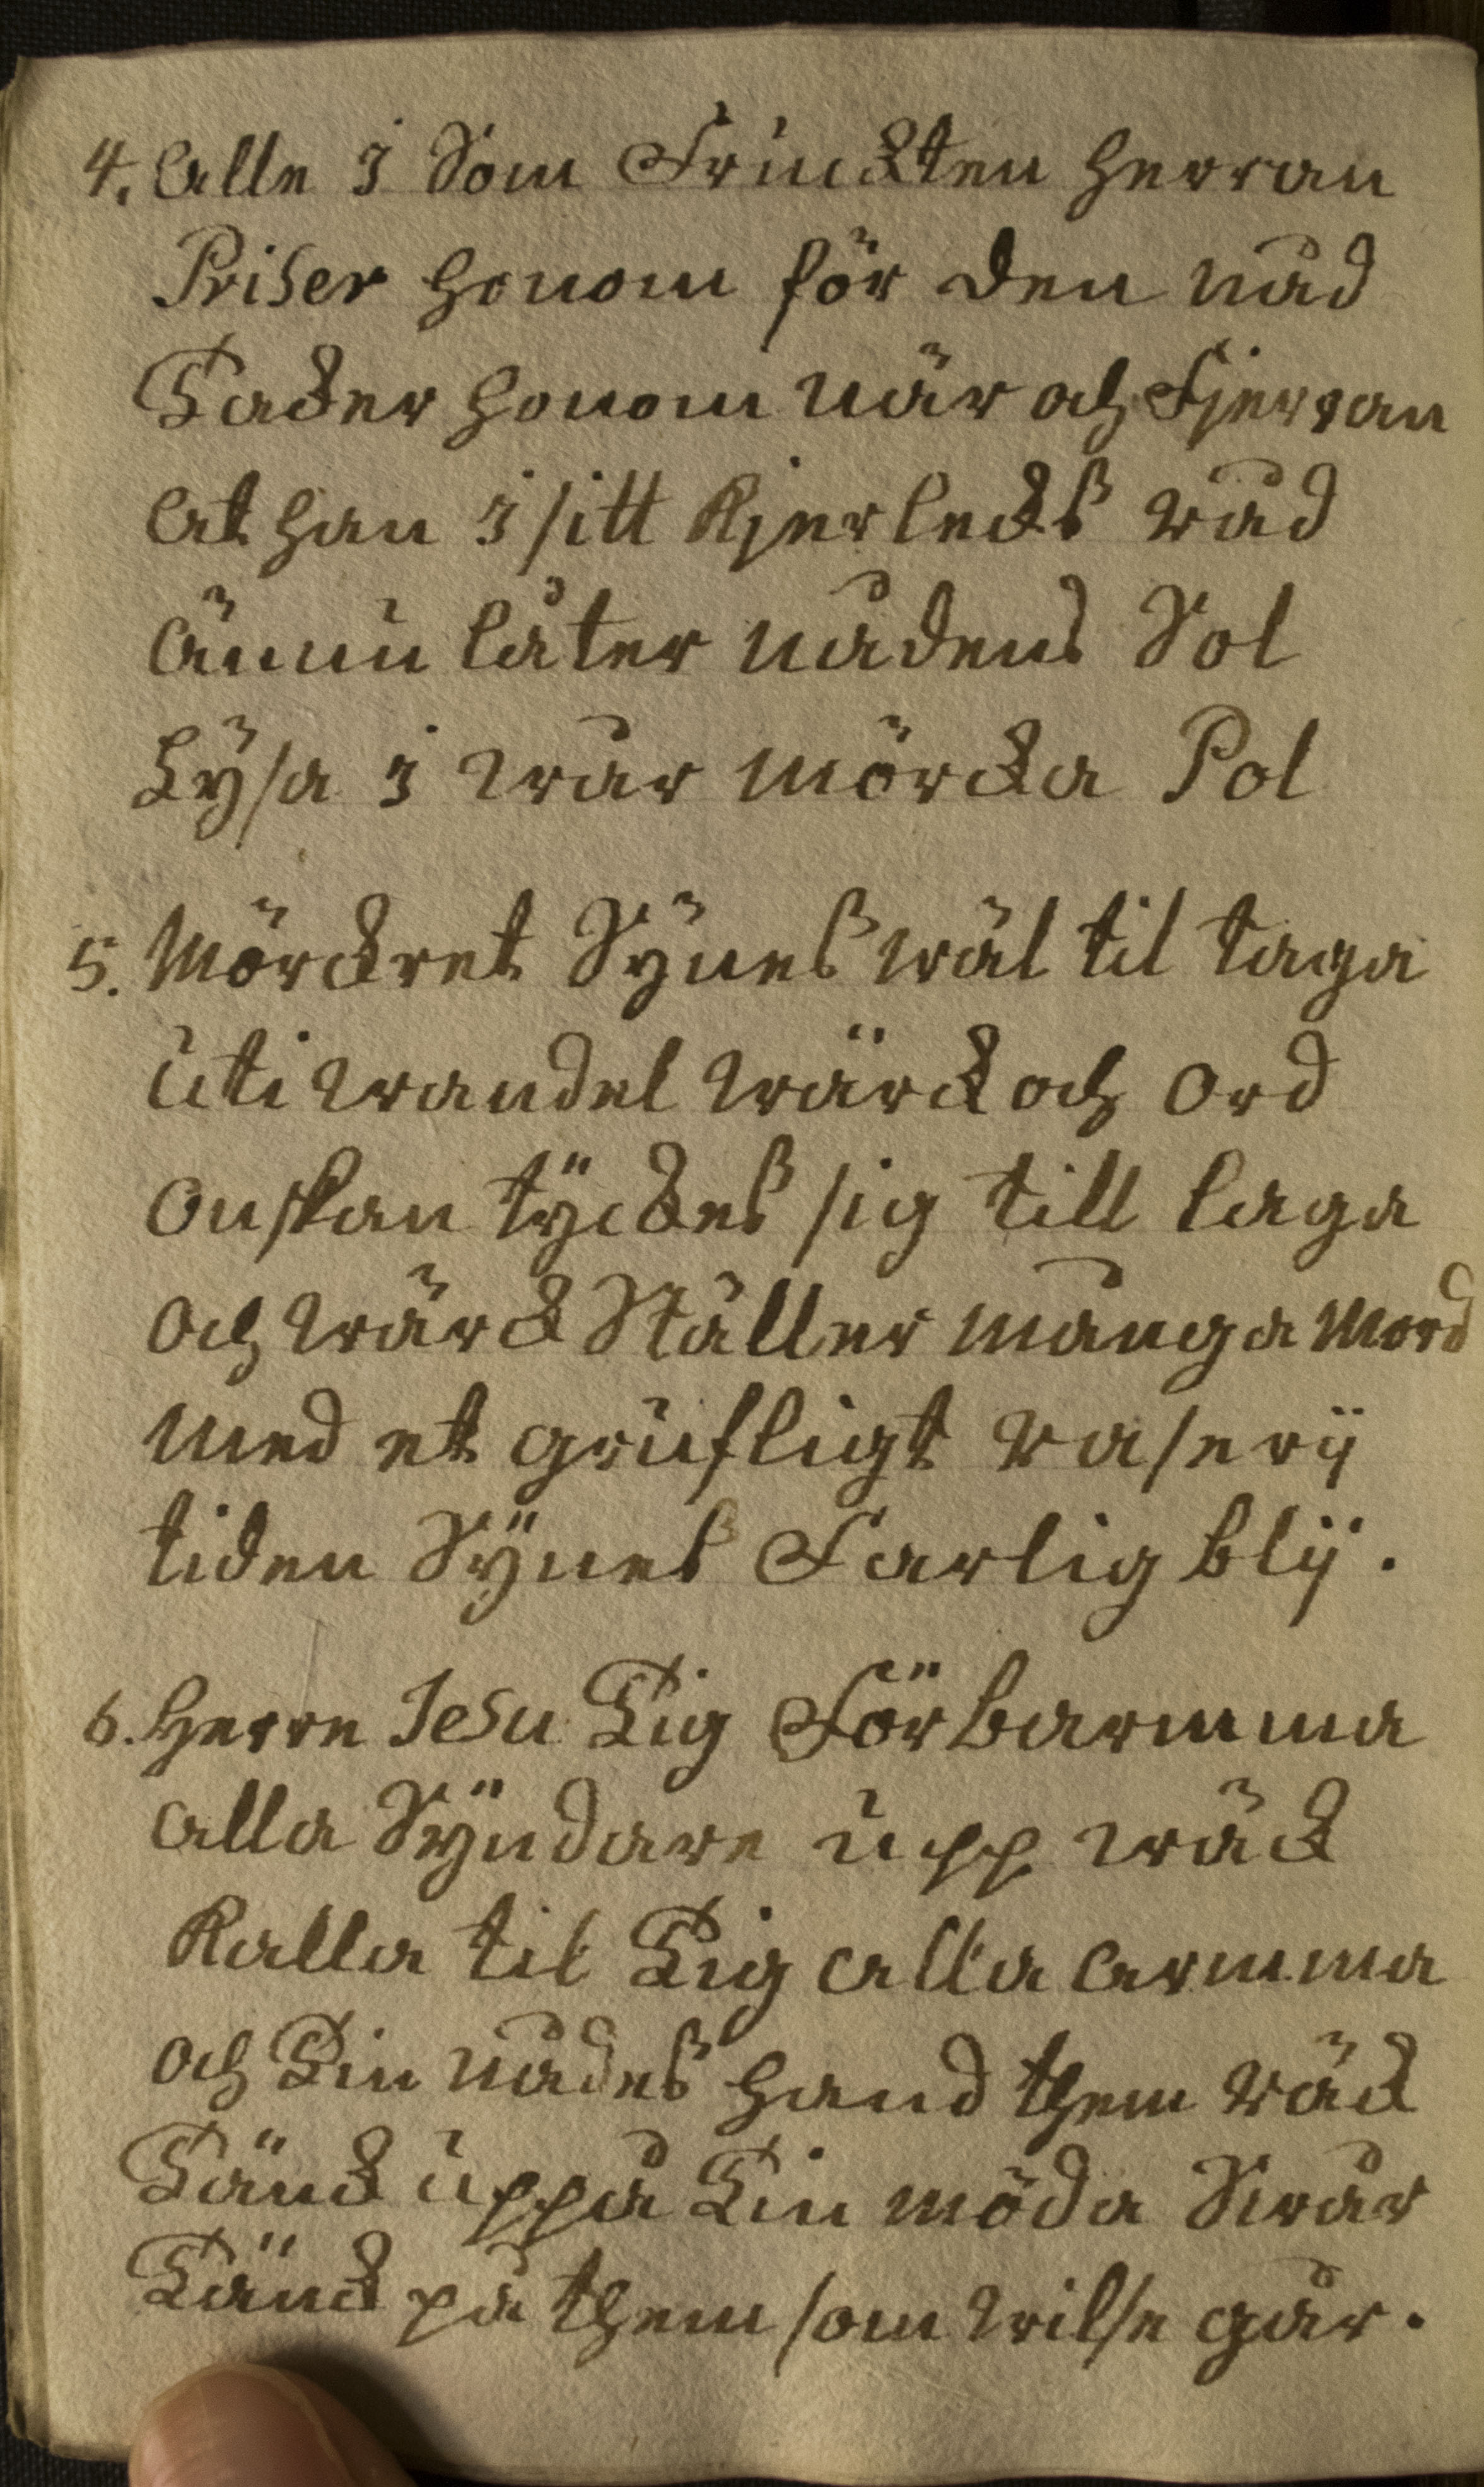 4. Alle I Som Fruckten Herran
Priser Honom för den nåd
Tacker Honom när och Fjerran
At Han I sitt Kjerlecks råd
Ännu låter nådens Sol
Lysa I wår mörcka Pol
5. Mörckret Synes wäl til taga
Uti wandel wärck och Ord
Onskan tÿckes sig till laga
Och wärck Ställer många Mord
Med et grufligt raserij
tiden Sÿnes Farlig blij.
6. Herre Jesu Tig Förbarmma
alla Sÿndare upp wäck
Kalla til Tig alla armma
och Tin nådes Hand them räck
Tänck uppå Tin möda Swår
Tänck på them som wilse går.